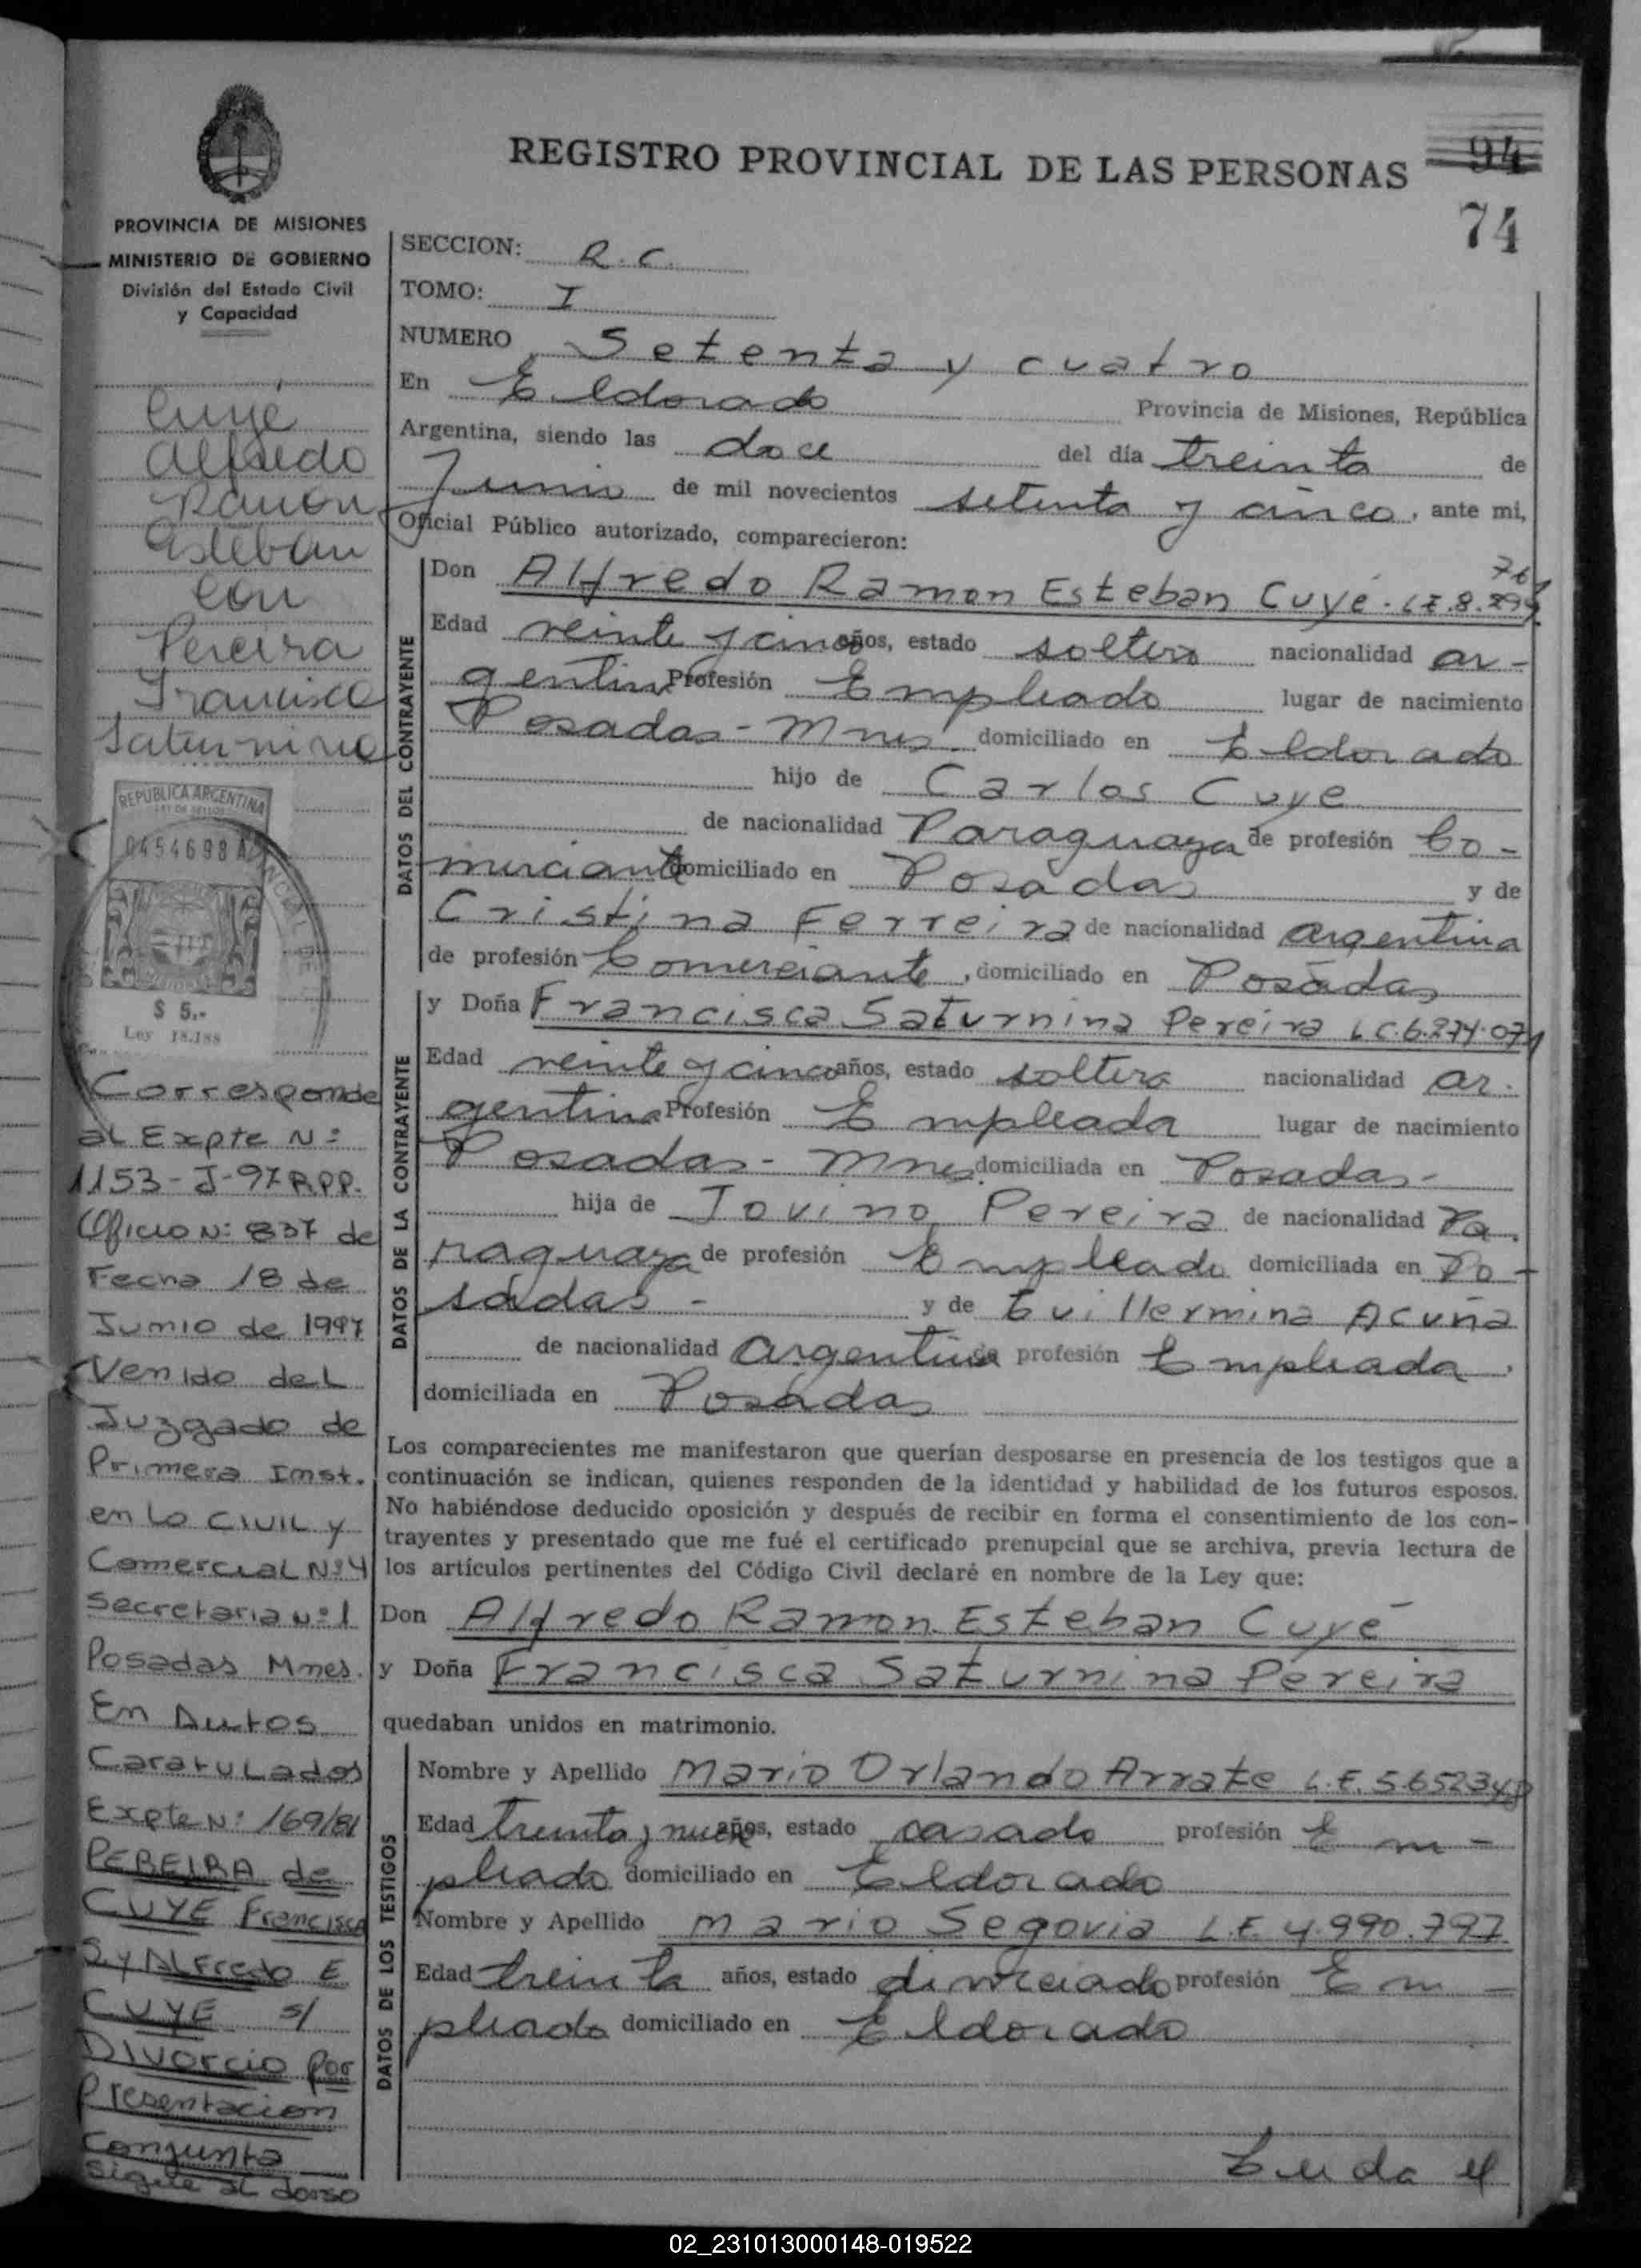 REGISTRO PROVINCIAL DE LAS PERSONAS
94
74
PROVINCIA DE MISIONES
MINISTERIO DE GOBIERNO
División del Estado Civil
y Capacidad
Cuyé
Alfredo
Ramón
Esteban
con
Pereira
Francisca
Saturnina
REPUBLICA ARGENTINA
LEY DE SELLOS
0454698 A
$ 5.-
Ley 18.188
Corresponde
al Expte N:
1153-J-97 R.P.P.
Oficio N: 837 de
Fecha 18 de
Junio de 1997
Venido del
Juzgado de
Primera Inst.
en lo Civil y
Comercial Nº 4
Secretaria Nº 1
Posadas Mnes.
En Autos
Caratulados
Expte N: 169/81
PEREIRA de
CUYE Francisca
S. y Alfredo E
CUYE s/
Divorcio por
Presentacion
Conjunta
Sigue al dorso
SECCION: R.C.
TOMO: I
NUMERO Setenta y cuatro
En Eldorado Provincia de Misiones, República
Argentina, siendo las doce del día treinta de
Junio de mil novecientos setenta y cinco, ante mi,
Oficial Público autorizado, comparecieron:
DATOS DEL CONTRAYENTE
Don Alfredo Ramon Esteban Cuyé. L.E. 8.
Edad veinte y cinco años, estado soltero nacionalidad ar-
gentina Profesión Empleado lugar de nacimiento
Posadas - Mnes. domiciliado en Eldorado
hijo de Carlos Cuye
de nacionalidad Paraguaya de profesión Co-
merciante domiciliado en Posadas y de
Cristina Ferreira de nacionalidad argentina
de profesión Comerciante, domiciliado en Posadas
DATOS DE LA CONTRAYENTE
y Doña Francisca Saturnina Pereira L.C. 6.274.071
Edad veinte y cinco años, estado soltera nacionalidad ar.
gentina Profesión Empleada lugar de nacimiento
Posadas - Mnes. domiciliada en Posadas -
hija de Jovino Pereira de nacionalidad Pa.
raguaya de profesión Empleado domiciliada en Po-
sadas - y de Guillermina Acuña
de nacionalidad argentina de profesión Empleada.
domiciliada en Posadas
Los comparecientes me manifestaron que querían desposarse en presencia de los testigos que a
continuación se indican, quienes responden de la identidad y habilidad de los futuros esposos.
No habiéndose deducido oposición y después de recibir en forma el consentimiento de los con-
trayentes y presentado que me fué el certificado prenupcial que se archiva, previa lectura de
los artículos pertinentes del Código Civil declaré en nombre de la Ley que:
Don Alfredo Ramon Esteban Cuyé
y Doña Francisca Saturnina Pereira
quedaban unidos en matrimonio.
DATOS DE LOS TESTIGOS
Nombre y Apellido Mario Orlando Arrate L.E. 5.652348
Edad treinta y nueve años, estado casado profesión Em-
pleado domiciliado en Eldorado
Nombre y Apellido Mario Segovia L.E. 4.990.797
Edad treinta años, estado divorciado profesión Em-
pleado domiciliado en Eldorado
02_231013000148-019522